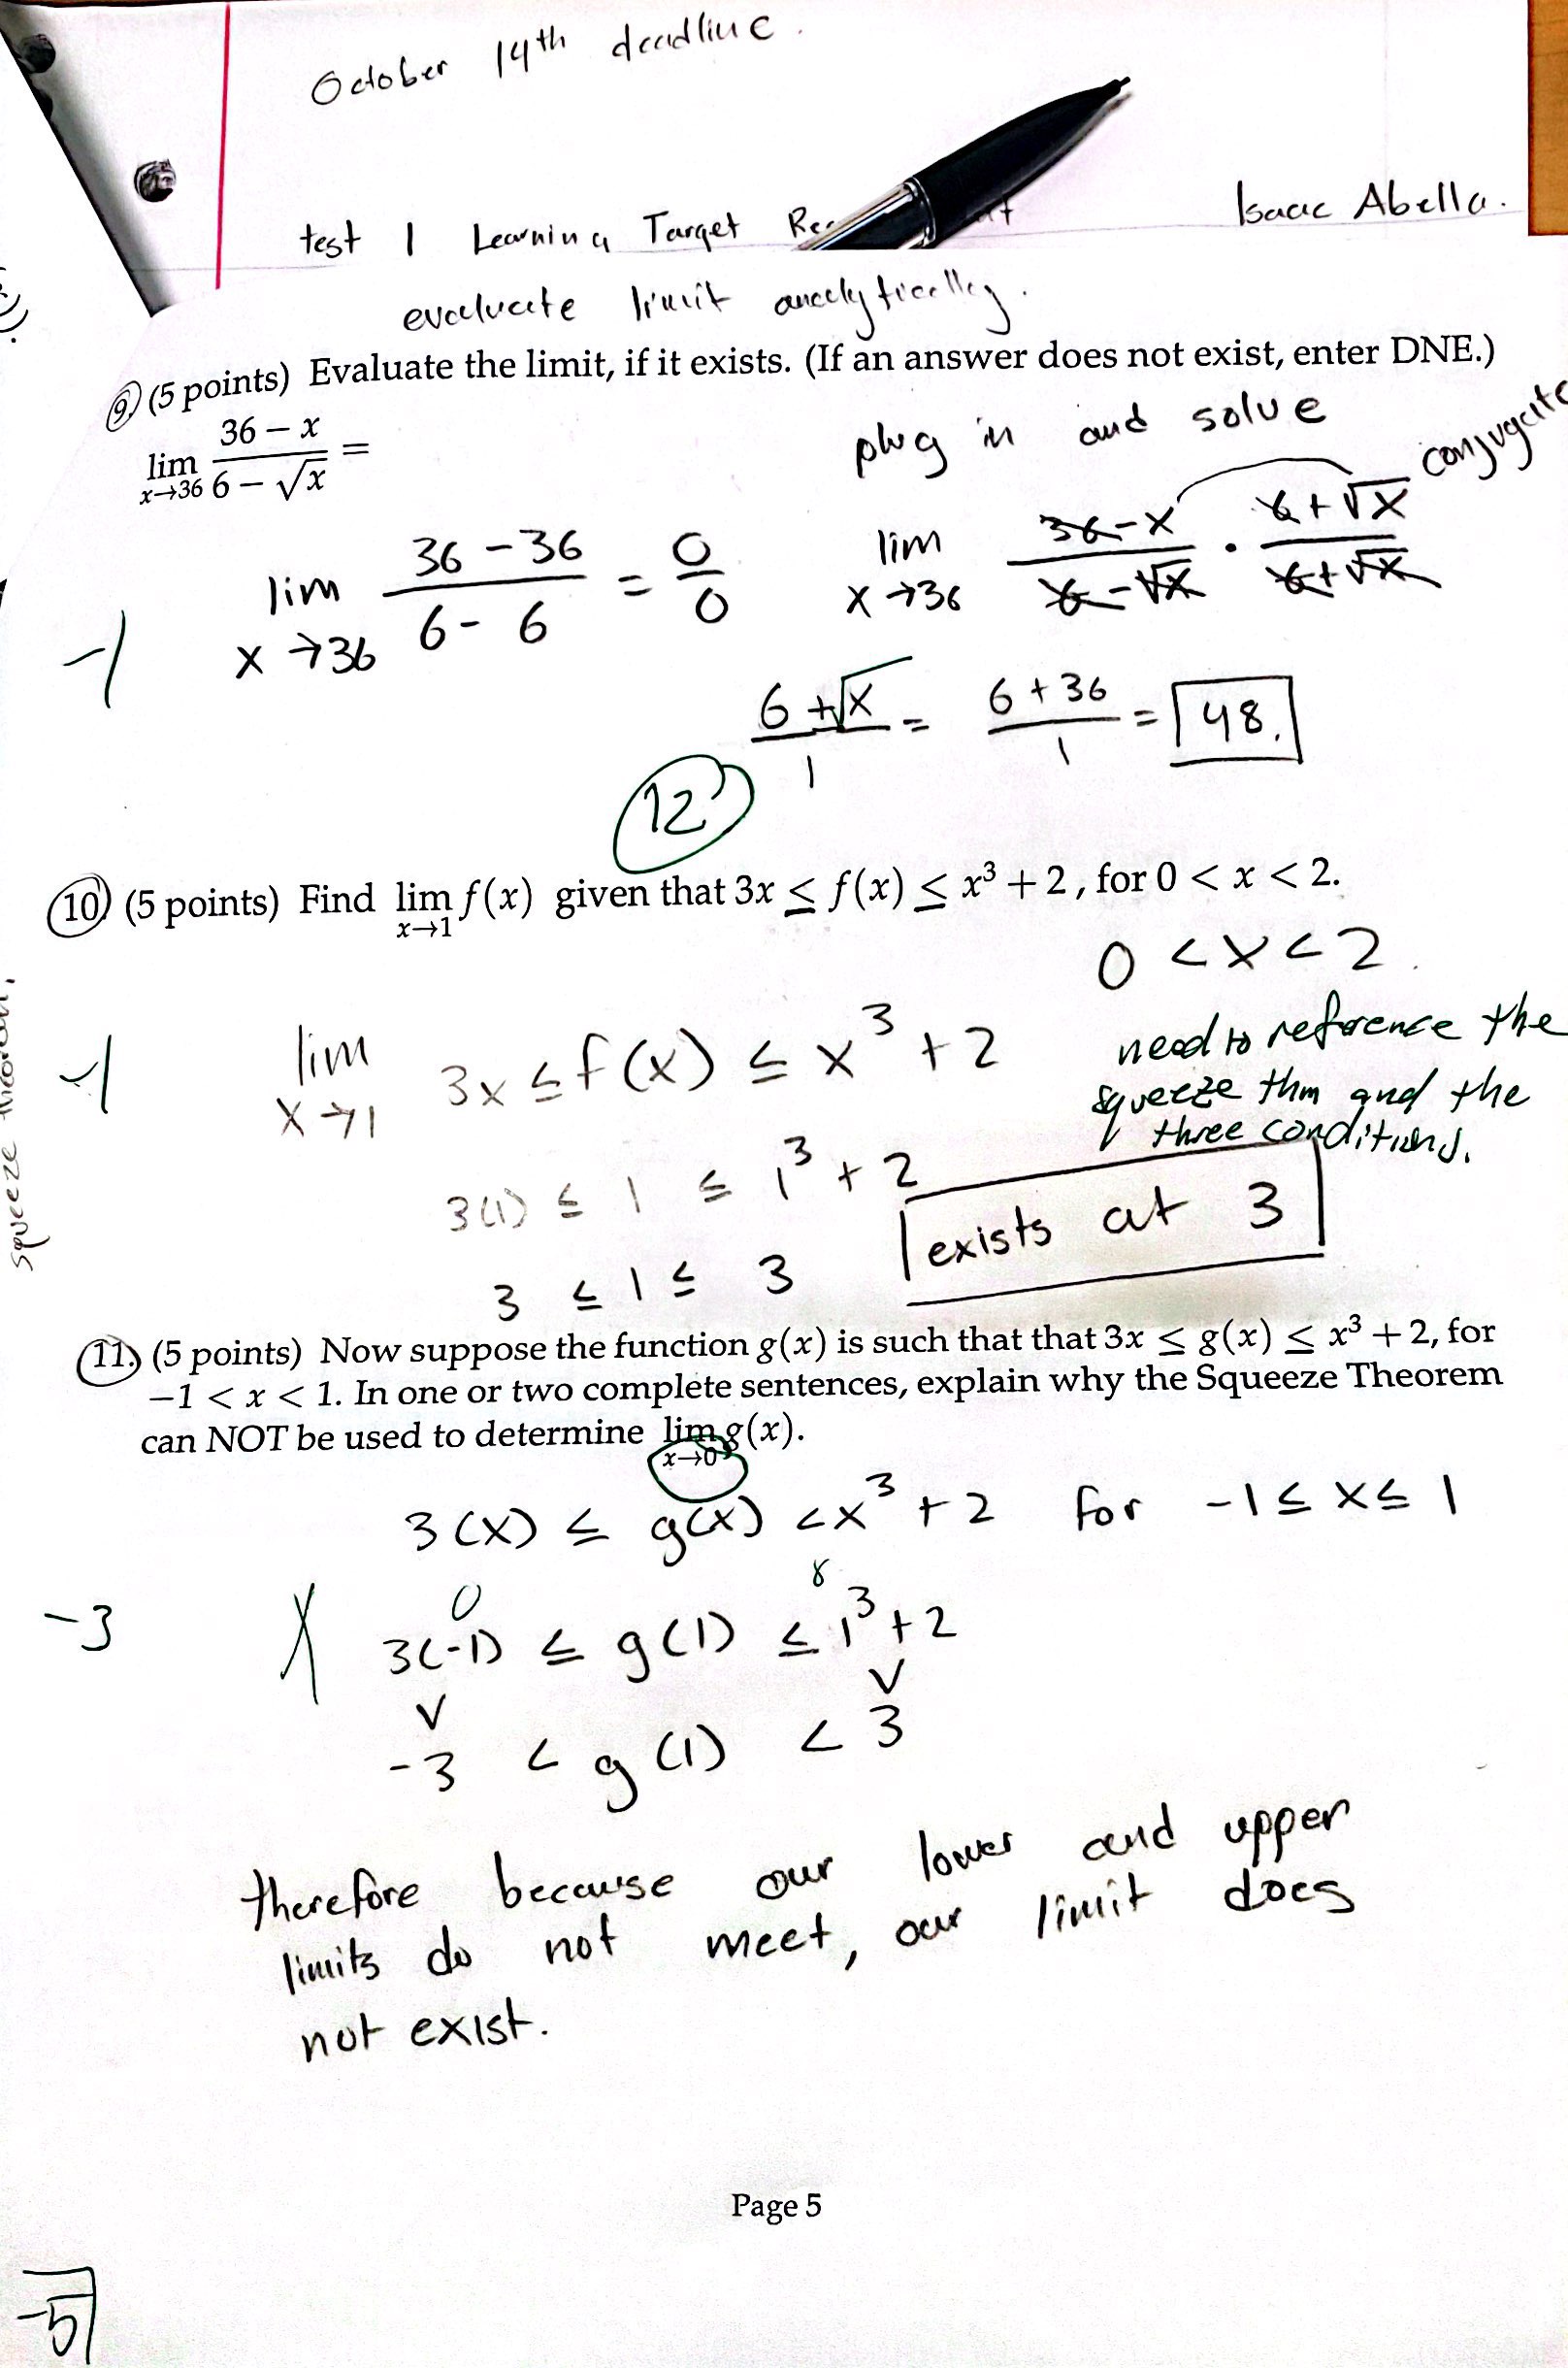 October 14th deadline.
test 1 Learning Target
Isaac Abella.
evaluate limit analytically.
9. (5 points) Evaluate the limit, if it exists. (If an answer does not exist, enter DNE.)
lim x→36 (36 − x)/(6 − √x) =
plug in and solve
conjugate
lim x→36 (36 - 36)/(6 - 6) = 0/0
lim x→36 (36-x)/(6-√x) · (6+√x)/(6+√x)
-1
(6+√x)/1 = (6+36)/1 = 48.
12
10. (5 points) Find lim x→1 f(x) given that 3x ≤ f(x) ≤ x³ + 2, for 0 < x < 2.
0 < x < 2.
squeeze theorem,
-1
lim x→1 3x ≤ f(x) ≤ x³ + 2
need to reference the
squeeze thm and the
three conditions.
3(1) ≤ 1 ≤ 1³ + 2
exists at 3
3 ≤ 1 ≤ 3
11. (5 points) Now suppose the function g(x) is such that that 3x ≤ g(x) ≤ x³ + 2, for
−1 < x < 1. In one or two complete sentences, explain why the Squeeze Theorem
can NOT be used to determine lim x→0 g(x).
3(x) ≤ g(x) < x³ + 2 for -1 ≤ x ≤ 1
-3
0
3(-1) ≤ g(1) ≤ 1³+2
-3 < g(1) < 3
therefore because our lower and upper
limits do not meet, our limit does
not exist.
Page 5
-5